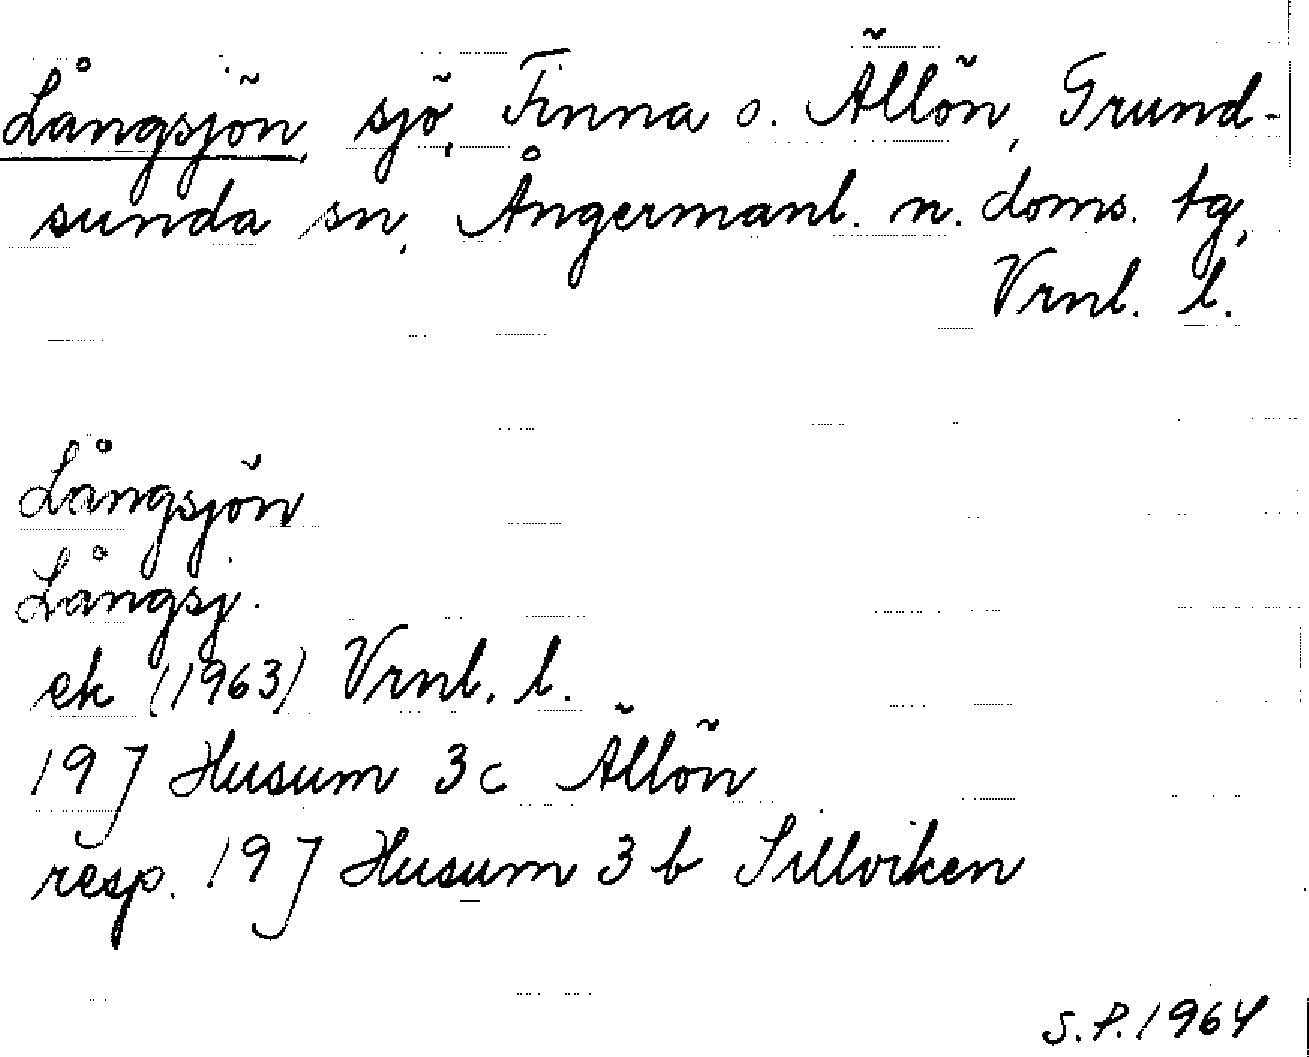 Långsjön, sjö, Finna o. Ällön, Grund-
sunda sn, Ångermanl. n. doms. tg,
Vrnl. l.
Långsjön
Långsj.
ek (1963) Vrnl. l.
19 J Husum 3 c Ällön
resp. 19 J Husum 3 b Sillviken
S.P. 1964